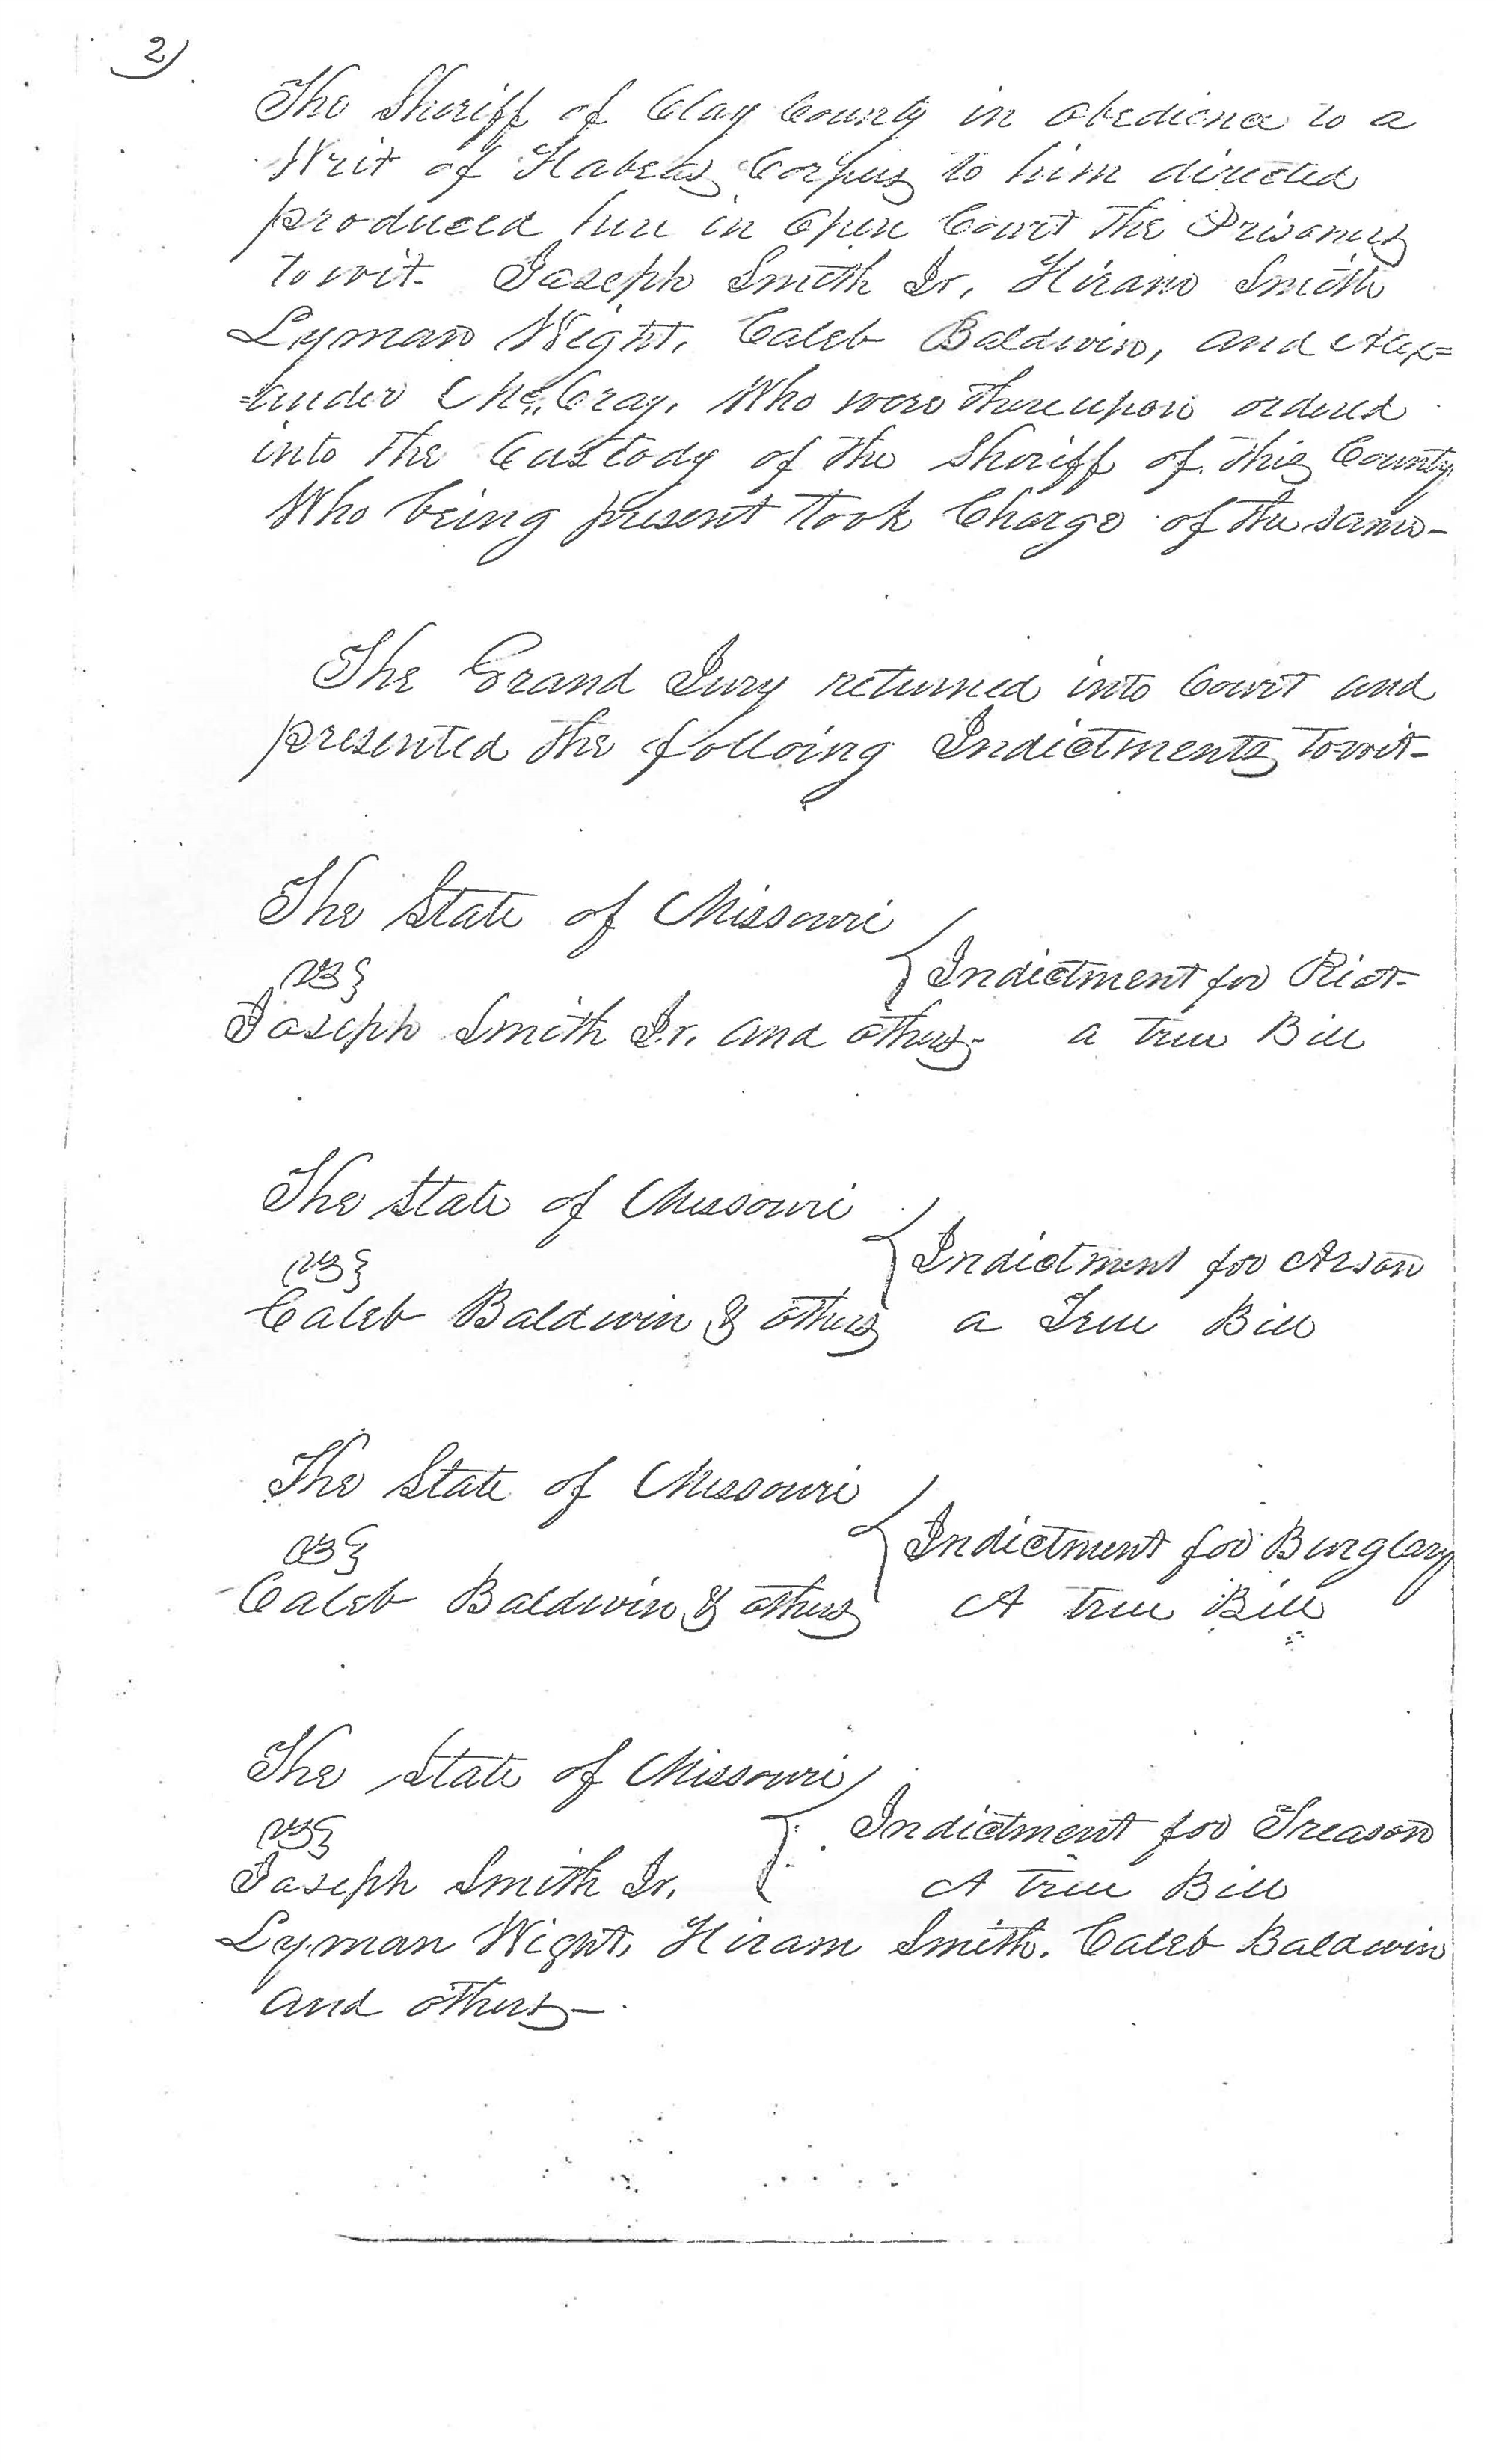 2)
The Sheriff of Clay County in obedience to a
Writ of Habeas Corpus to him directed
produced here in open Court the Prisoners
towit. Joseph Smith Jr, Hiram Smith
Lyman Wight, Caleb Baldwin, and Alex=
=ander McCray, Who were thereupon ordered
into the Custody of the Sheriff of this County
Who being present took Charge of the same-
The Grand Jury returned into Court and
presented the folloing Indictments towit-
The State of Missouri
vs }
{ Indictment for Riot-
Joseph Smith Jr. and others- a true Bill
The State of Missouri
vs }
{ Indictment for Arson
Caleb Baldwin & others a True Bill
The State of Missouri
vs }
{ Indictment for Burglary
Caleb Baldwin & others A true Bill
The State of Missouri
vs }
{ Indictment for Treason
Joseph Smith Jr. A true Bill
Lyman Wight, Hiram Smith. Caleb Baldwin
and others-